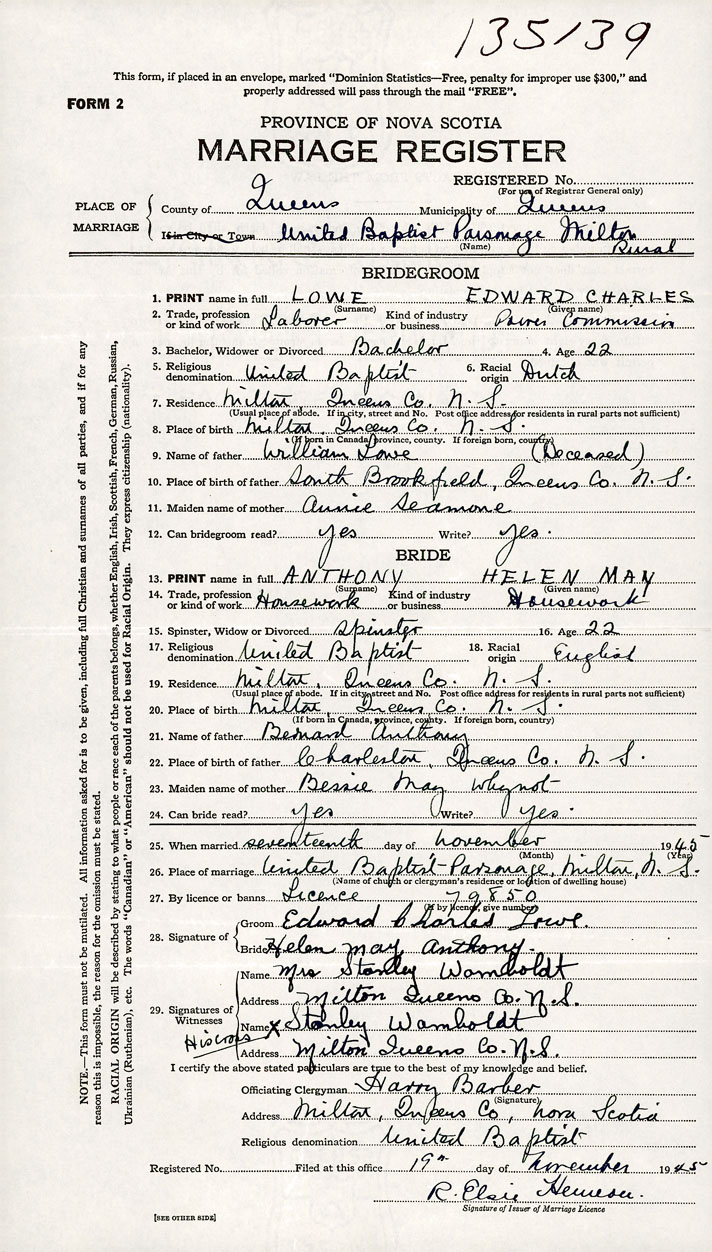 135139
This form, if placed in an envelope, marked "Dominion Statistics—Free, penalty for improper use $300," and
properly addressed will pass through the mail "FREE".
FORM 2
PROVINCE OF NOVA SCOTIA
MARRIAGE REGISTER
REGISTERED No.
(For use of Registrar General only)
PLACE OF MARRIAGE
County of Queens Municipality of Queens
Is in City or Town United Baptist Parsonage Milton
(Name) Rural
BRIDEGROOM
1. PRINT name in full LOWE EDWARD CHARLES
(Surname) (Given name)
2. Trade, profession or kind of work Laborer Kind of industry or business Power Commission
3. Bachelor, Widower or Divorced Bachelor 4. Age 22
5. Religious denomination United Baptist 6. Racial origin Dutch
7. Residence Milton, Queens Co. N. S.
(Usual place of abode. If in city, street and No. Post office address for residents in rural parts not sufficient)
8. Place of birth Milton, Queens Co. N. S.
(If born in Canada, province, county. If foreign born, country)
9. Name of father William Lowe (Deceased)
10. Place of birth of father South Brookfield, Queens Co. N. S.
11. Maiden name of mother Annie Seamone
12. Can bridegroom read? yes Write? yes.
BRIDE
13. PRINT name in full ANTHONY HELEN MAY
(Surname) (Given name)
14. Trade, profession or kind of work Housework Kind of industry or business Housework
15. Spinster, Widow or Divorced Spinster 16. Age 22
17. Religious denomination United Baptist 18. Racial origin English
19. Residence Milton, Queens Co. N. S.
(Usual place of abode. If in city street and No. Post office address for residents in rural parts not sufficient)
20. Place of birth Milton, Queens Co. N. S.
(If born in Canada, province, county. If foreign born, country)
21. Name of father Bernard Anthony
22. Place of birth of father Charleston, Queens Co. N. S.
23. Maiden name of mother Bessie May Whynot
24. Can bride read? yes Write? yes.
25. When married seventeenth day of november 1945
(Month) (Year)
26. Place of marriage United Baptist Parsonage, Milton, N. S.
(Name of church or clergyman's residence or location of dwelling house)
27. By licence or banns Licence 79850
(If by licence, give number)
28. Signature of Groom Edward Charles Lowe.
Bride Helen may Anthony.
29. Signatures of Witnesses
Name Mrs Stanley Wamboldt
Address Milton Queens Co. N.S.
Name X Stanley Wamboldt
His cross
Address Milton Queens Co. N.S.
I certify the above stated particulars are true to the best of my knowledge and belief.
Officiating Clergyman Harry Barber
(Signature)
Address Milton, Queens Co, Nova Scotia
Religious denomination United Baptist
Registered No. Filed at this office 19th day of November 1945
R. Elsie
Signature of Issuer of Marriage Licence
[SEE OTHER SIDE]
NOTE.—This form must not be mutilated. All information asked for is to be given, including full Christian and surnames of all parties, and if for any
reason this is impossible, the reason for the omission must be stated.
RACIAL ORIGIN will be described by stating to what people or race each of the parents belongs, whether English, Irish, Scottish, French, German, Russian,
Ukrainian (Ruthenian), etc. The words "Canadian" or "American" should not be used for Racial Origin. They express citizenship (nationality).